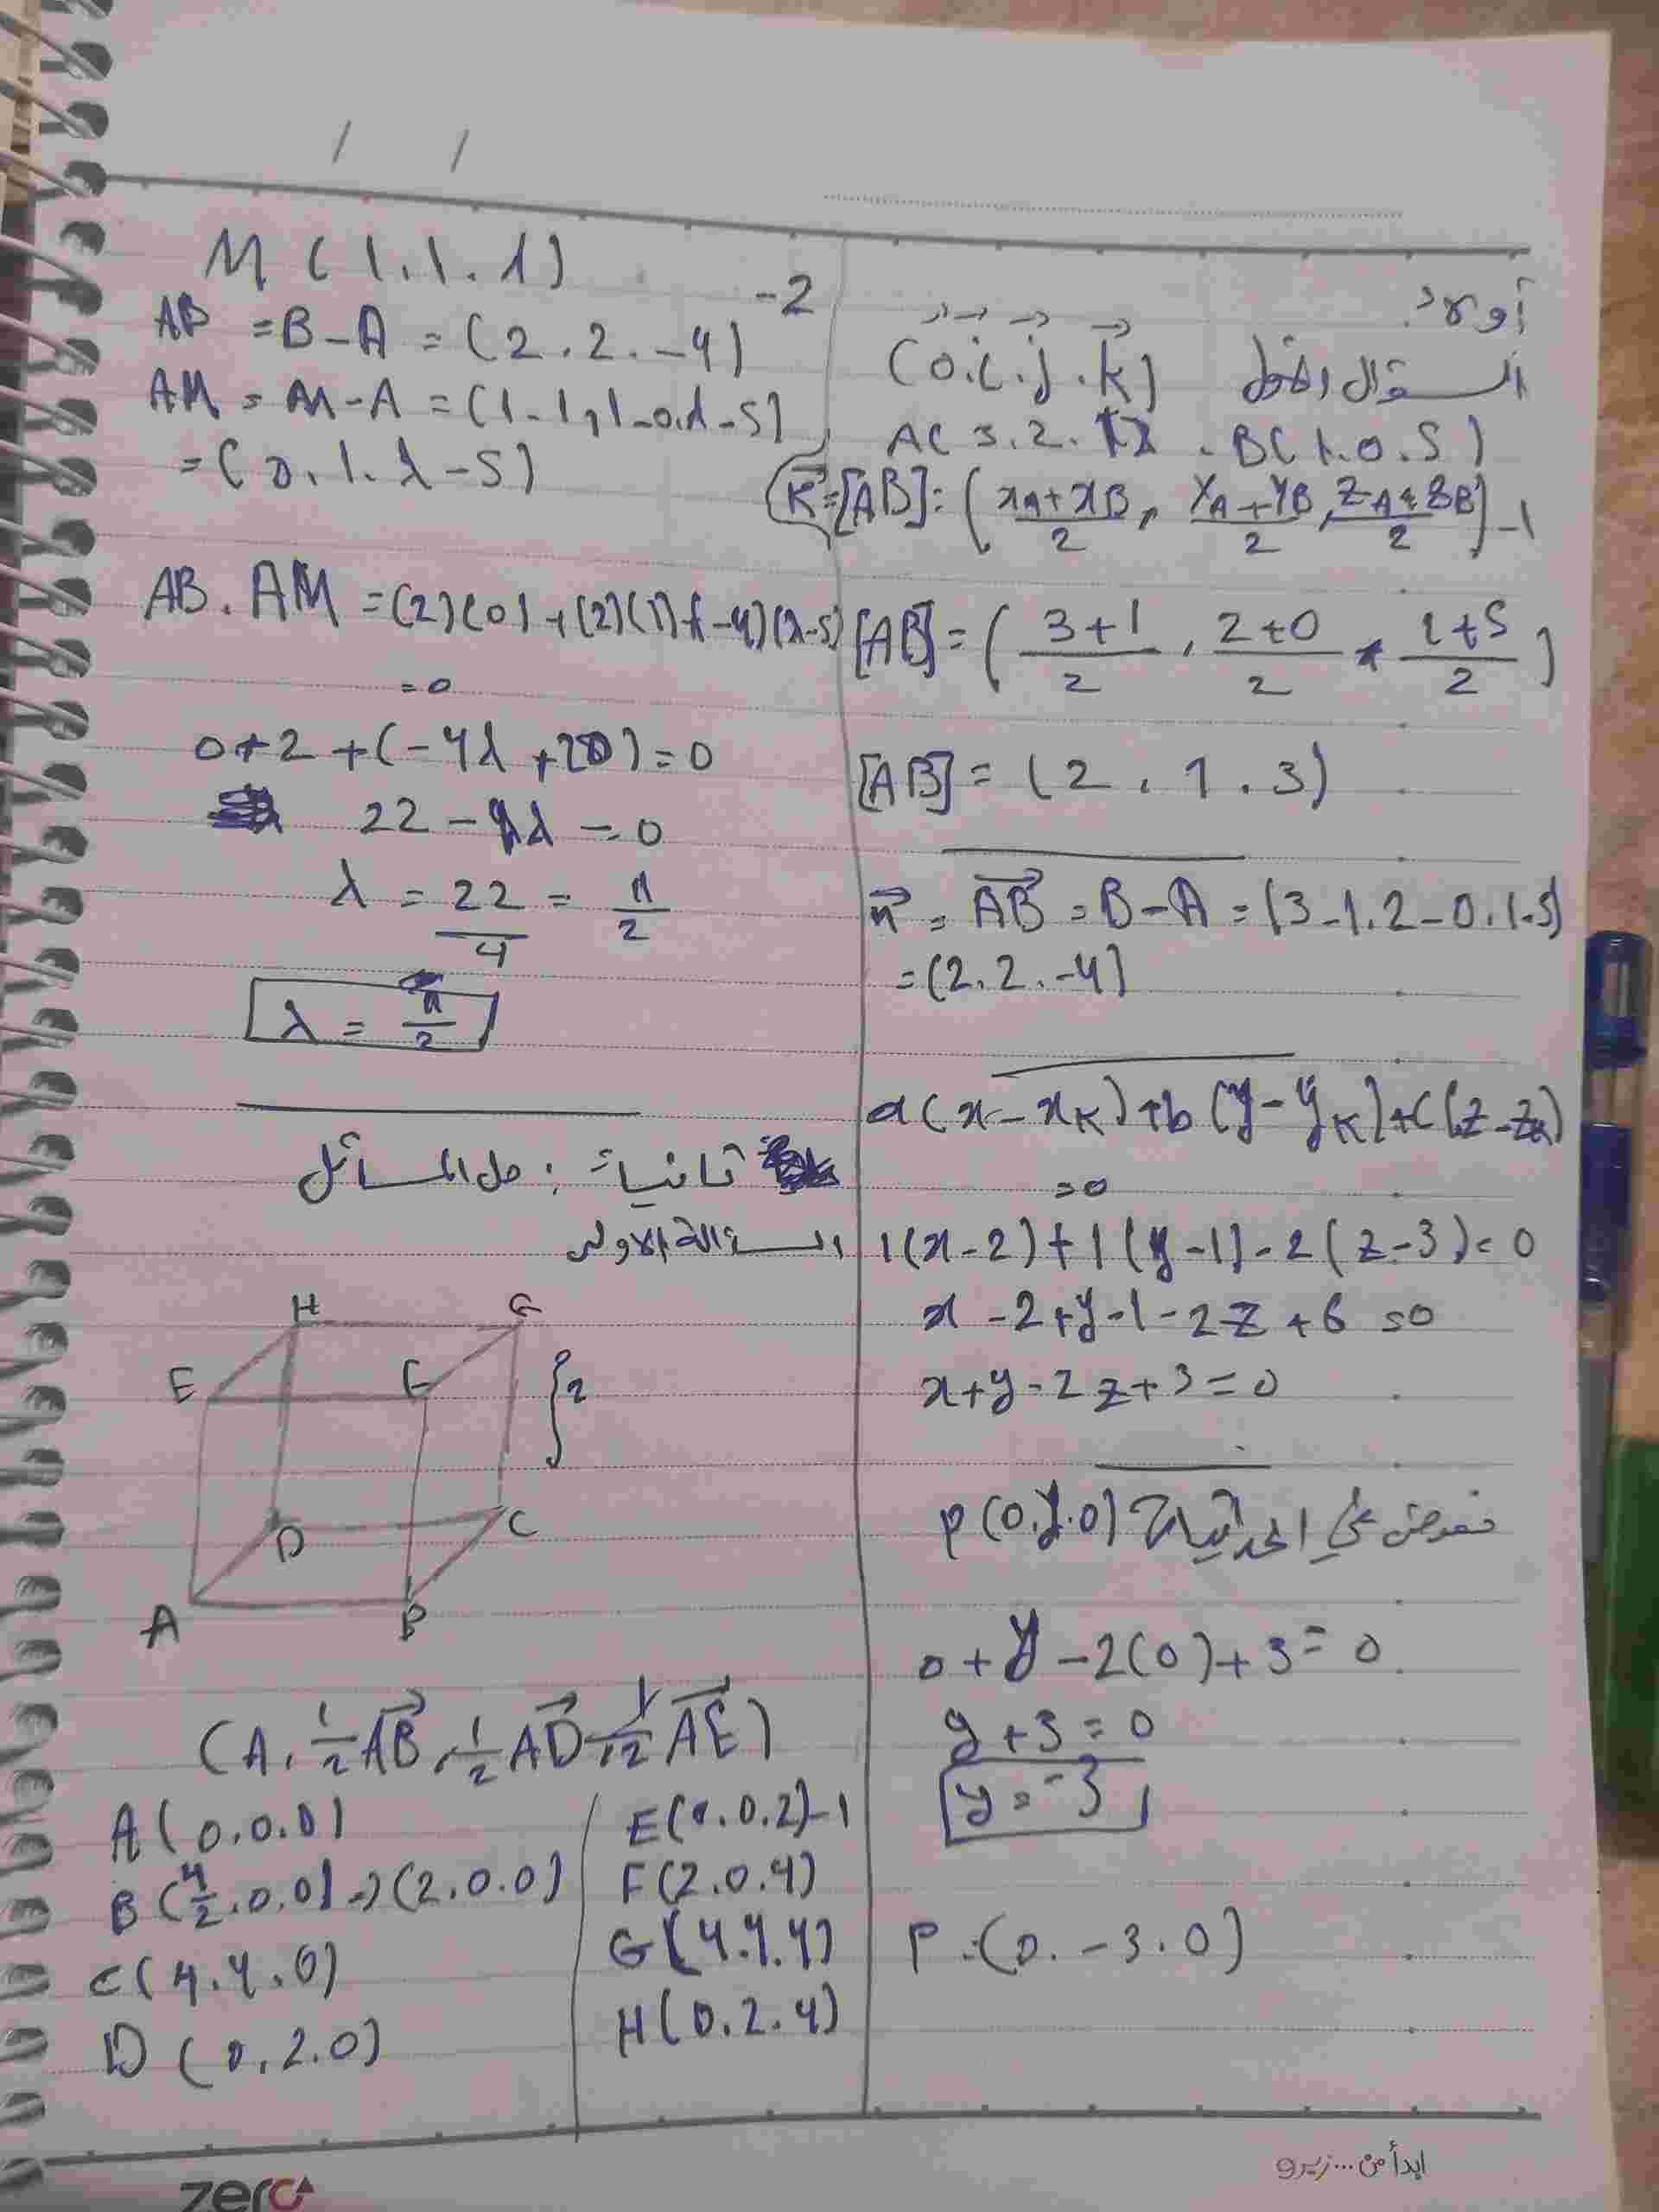 أولاً:
السؤال الأول (o.i.j.k)
A(3.2.1) . B(1.0.5)
K=[AB]: (xA+xB/2, yA+yB/2, zA+zB/2) -1
[AB]=(3+1/2, 2+0/2, 1+5/2)
[AB]=(2, 1.3)
n = AB = B-A = (3-1.2-0.1-5)
=(2.2.-4)
a(x-xK)+b(y-yK)+c(z-zK)
=0
1(x-2)+1(y-1)-2(z-3)=0
x-2+y-1-2z+6=0
x+y-2z+3=0
نعوض في احداثيات P(0.y.0)
0+y-2(0)+3=0
y+3=0
y=-3
P.(0.-3.0)
M(1.1.λ)
-2
AB =B-A=(2.2.-4)
AM = M-A=(1-1,1-0.λ-5)
=(0.1.λ-5)
AB.AM=(2)(0)+(2)(1)+(-4)(λ-5)
=0
0+2+(-4λ+20)=0
22-4λ=0
λ=22/4=11/2
λ=11/2
ثانياً: حل المسائل
المسألة الأولى
H G
E F
2
D C
A B
(A, 1/2 AB, 1/2 AD, 1/2 AE)
A(0.0.0)
B(4/2.0.0)→(2.0.0)
C(4.4.0)
D(0.2.0)
E(0.0.2)-1
F(2.0.4)
G(4.4.4)
H(0.2.4)
ابدأ من... زيرو
zero